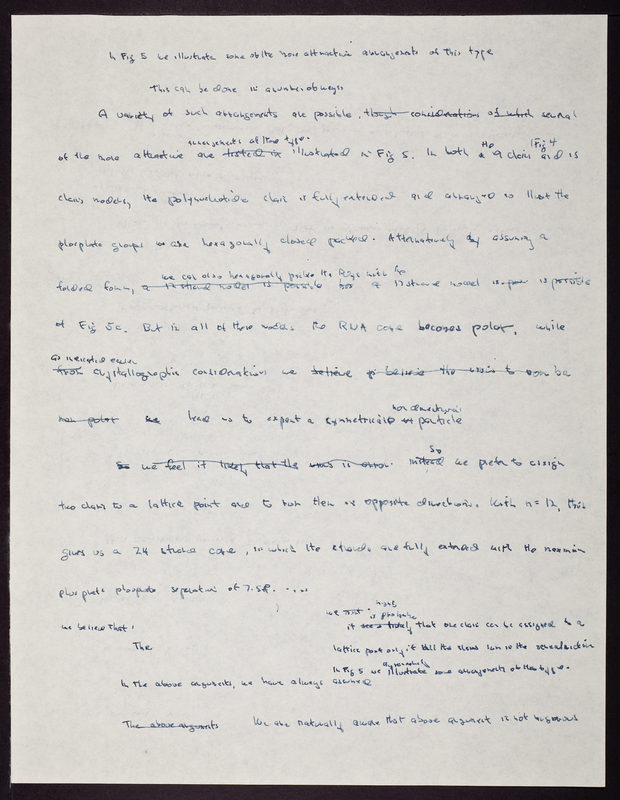 In Fig 5 we illustrate some of the more attractive arrangements of this type
This can be done in a number of ways
A variety of such arrangements are possible, though considerations of which several
arrangements of this type.
of the more attractive are listed in illustrated in Fig 5. In both the 9 chain and 12 Fig 4
chain models, the polynucleotide chain is fully extended and arranged so that the
phosphate groups are hexagonally closed packed. Alternatively by assuming a
we can also hexagonally pack the
folded form, a 12 strand model is possible 12 strand model is possible
of Fig 5c. But in all of these models the RNA core becomes polar, while
as indicated earlier
from crystallographic considerations we believe the to be
non polar lead us to expect a symmetrical particle
So we feel it likely that the virus is So instead we prefer to assign
two chains to a lattice point and to run them in opposite directions. With n = 12, this
gives us a 24 strand core, in which the strands are fully extended with the maximum
phosphate phosphate separation of 7.5Å. ....
we believe that:
it is likely that one chain can be assigned to a
The
lattice point only if all the chains run in the same direction
In Fig 5 we illustrate some arrangements of this type.
In the above arguments, we have always assumed
The above arguments We are naturally aware that above argument is not rigorous